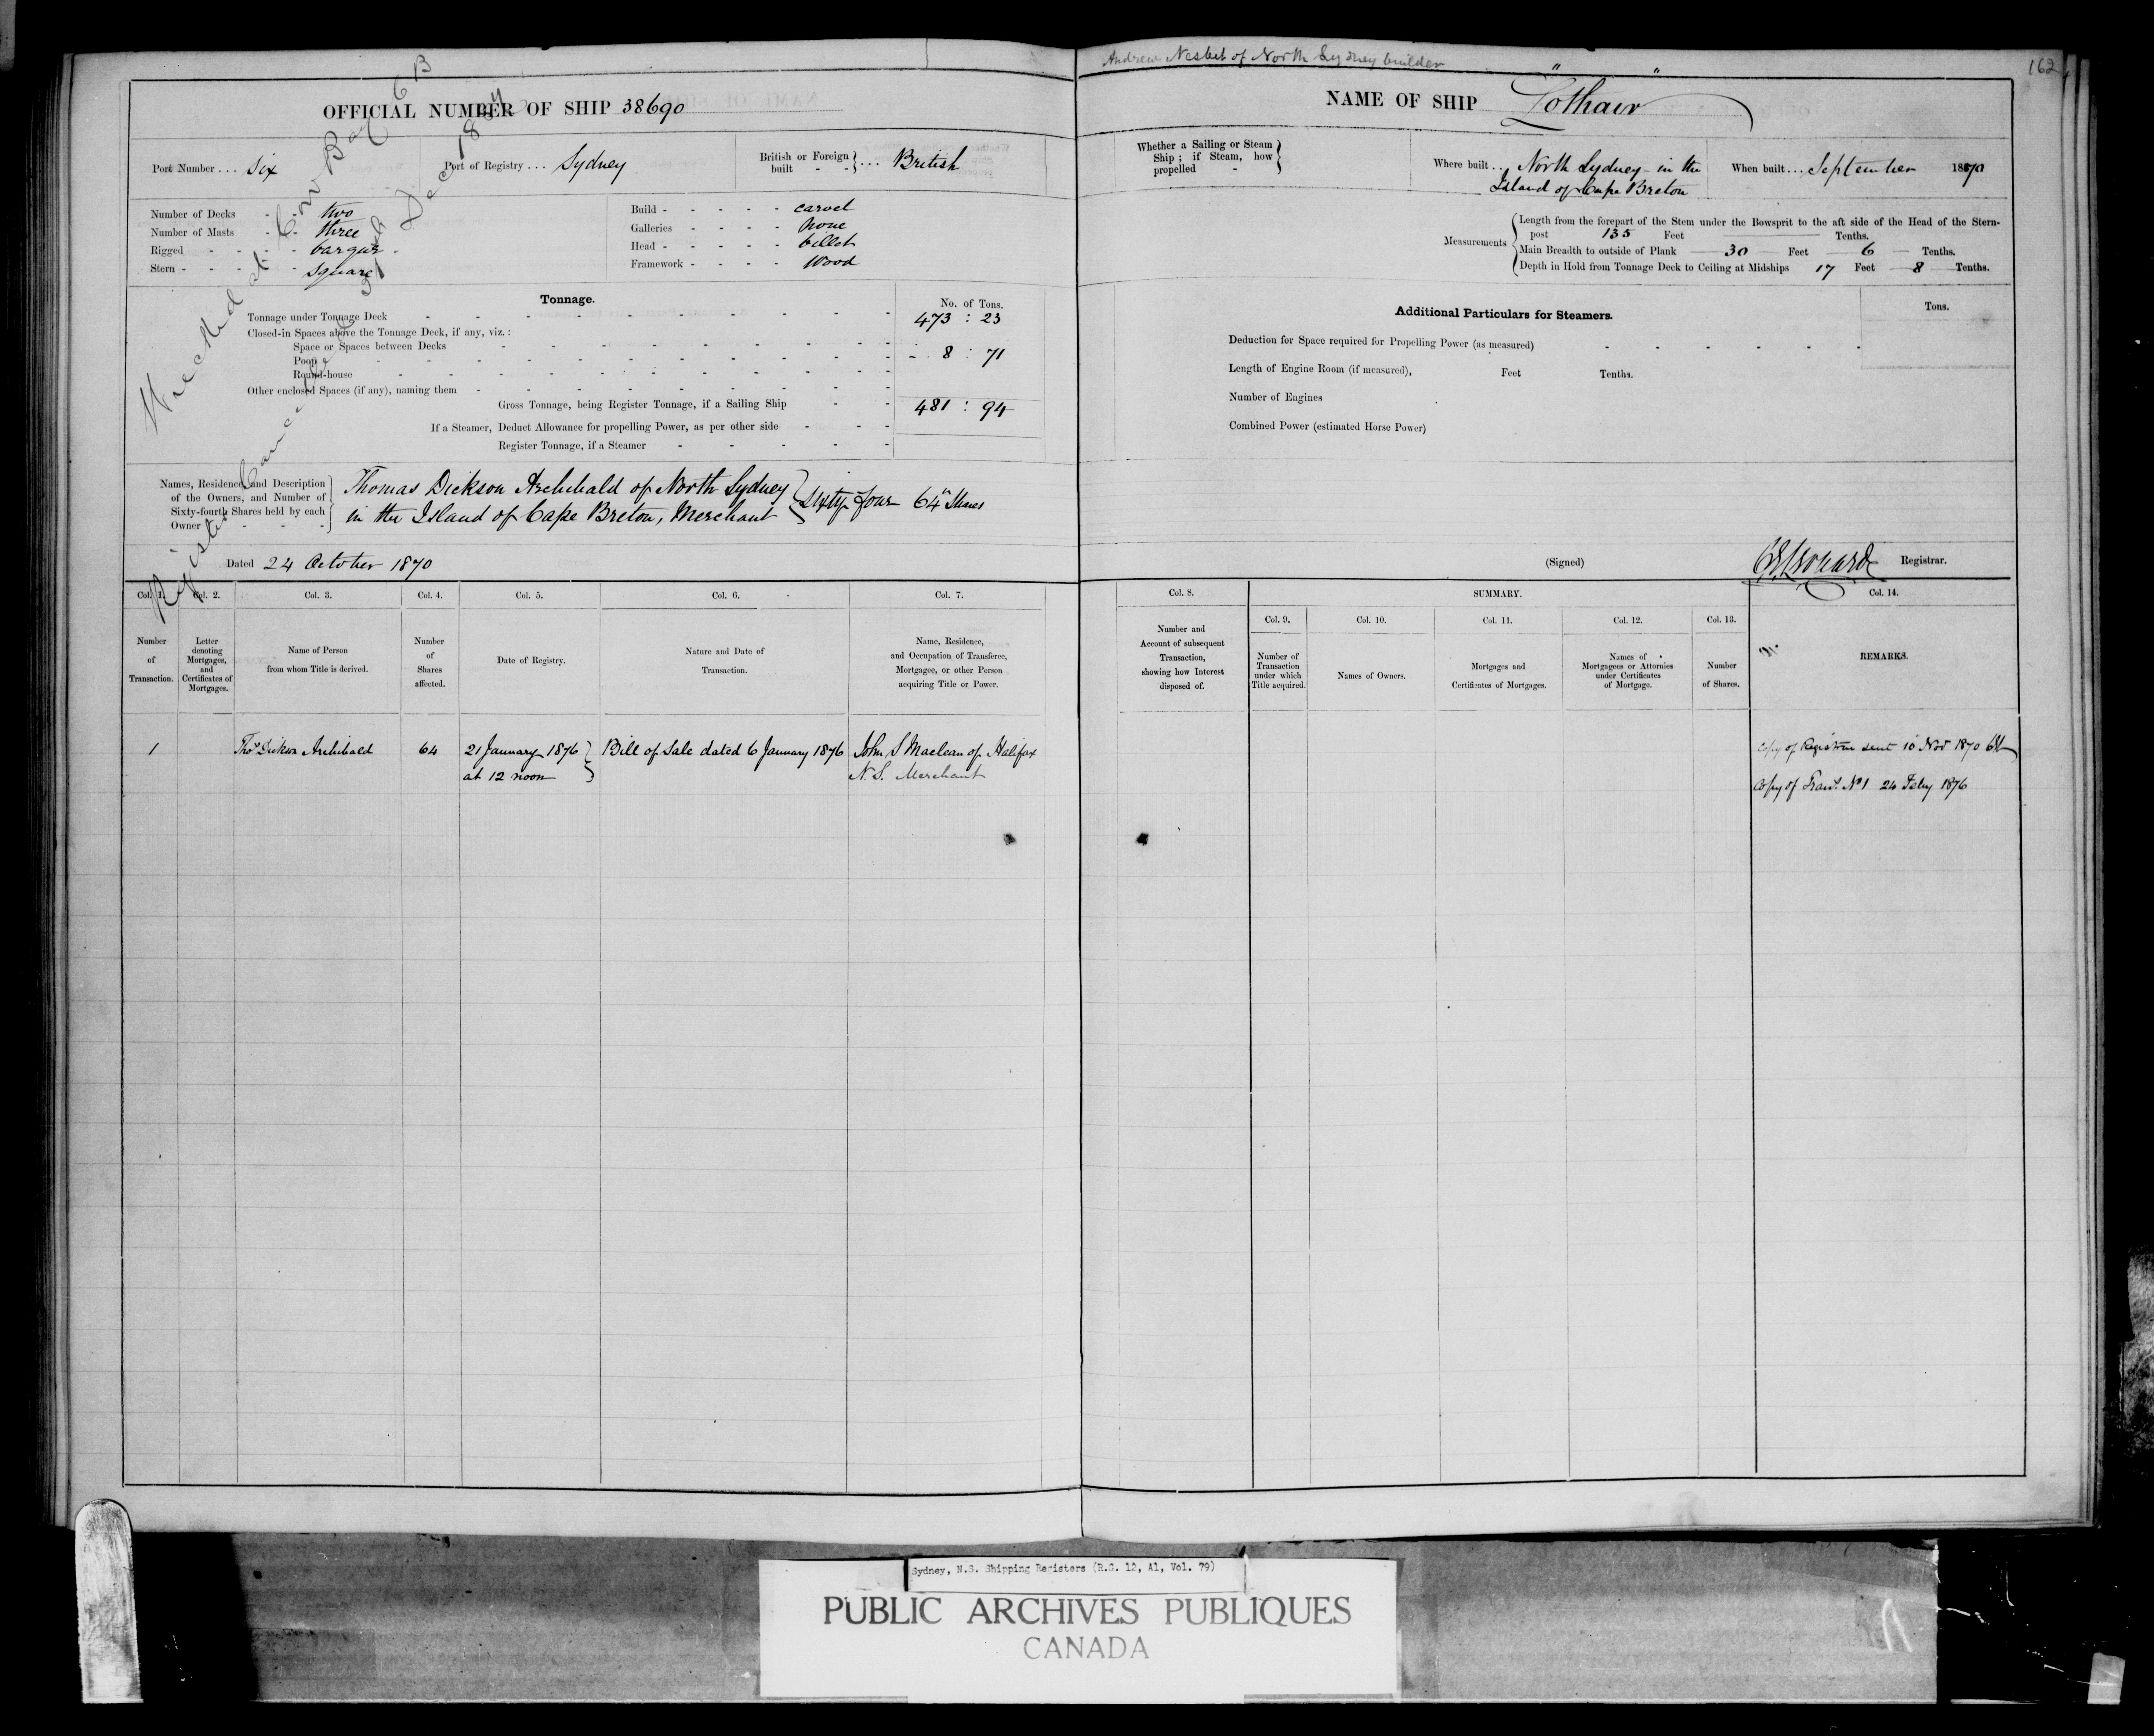 Andrew Nesbet of North Sydney builder
162
OFFICIAL NUMBER OF SHIP 38690
NAME OF SHIP "Lothair"
Port Number ... Six
Port of Registry ... Sydney
British or Foreign built - - } ... British
Whether a Sailing or Steam Ship ; if Steam, how propelled - }
Where built ... North Sydney in the
Island of Cape Breton
When built ... September 1870
Number of Decks - - two
Number of Masts - - three
Rigged - - - - barque
Stern - - - - - square
Build - - - - - carvel
Galleries - - - - none
Head - - - - - billet
Framework - - - - Wood
Measurements
Length from the forepart of the Stem under the Bowsprit to the aft side of the Head of the Stern-
post 135 Feet Tenths.
Main Breadth to outside of Plank 30 Feet 6 Tenths.
Depth in Hold from Tonnage Deck to Ceiling at Midships 17 Feet 8 Tenths.
Tonnage.
No. of Tons.
Tonnage under Tonnage Deck 473 : 23
Closed-in Spaces above the Tonnage Deck, if any, viz. :
Space or Spaces between Decks
Poop 8 : 71
Round-house
Other enclosed Spaces (if any), naming them
Gross Tonnage, being Register Tonnage, if a Sailing Ship 481 : 94
If a Steamer, Deduct Allowance for propelling Power, as per other side
Register Tonnage, if a Steamer
Additional Particulars for Steamers.
Tons.
Deduction for Space required for Propelling Power (as measured)
Length of Engine Room (if measured), Feet Tenths.
Number of Engines
Combined Power (estimated Horse Power)
Wrecked at Cow Bay C B
Register Cancelled 31st Dec 1874
Names, Residence, and Description
of the Owners, and Number of
Sixty-fourth Shares held by each
Owner - - -
Thomas Dickson Archibald of North Sydney
in the Island of Cape Breton, Merchant
} Sixty four 64 Shares
Dated 24 October 1870
(Signed) Registrar.
Col. 1. Col. 2. Col. 3. Col. 4. Col. 5. Col. 6. Col. 7. Col. 8. SUMMARY. Col. 14.
Col. 9. Col. 10. Col. 11. Col. 12. Col. 13.
Number of Transaction.
Letter denoting Mortgages, and Certificates of Mortgages.
Name of Person from whom Title is derived.
Number of Shares affected.
Date of Registry.
Nature and Date of Transaction.
Name, Residence, and Occupation of Transferee, Mortgagee, or other Person acquiring Title or Power.
Number and Account of subsequent Transaction, showing how Interest disposed of.
Number of Transaction under which Title acquired.
Names of Owners.
Mortgages and Certificates of Mortgages.
Names of Mortgagees or Attornies under Certificates of Mortgage.
Number of Shares.
REMARKS.
1 Thos Dickson Archibald 64 21 January 1876 Bill of Sale dated 6 January 1876 John S Maclean of Halifax
at 12 noon N.S. Merchant
Copy of Register sent 10 Nov 1870
Copy of Tran. No 1 24 Feby 1876
Sydney, N.S. Shipping Registers (R.G. 12, A1, Vol. 79)
PUBLIC ARCHIVES PUBLIQUES
CANADA